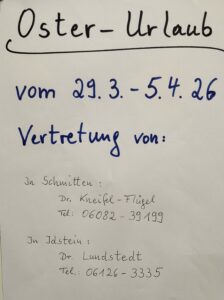 Oster-Urlaub
vom 29.3.-5.4.26
Vertretung von:
In Schmitten:
Dr. Kneifel-Flügel
Tel: 06082-39199
In Idstein:
Dr. Lundstedt
Tel: 06126-3335